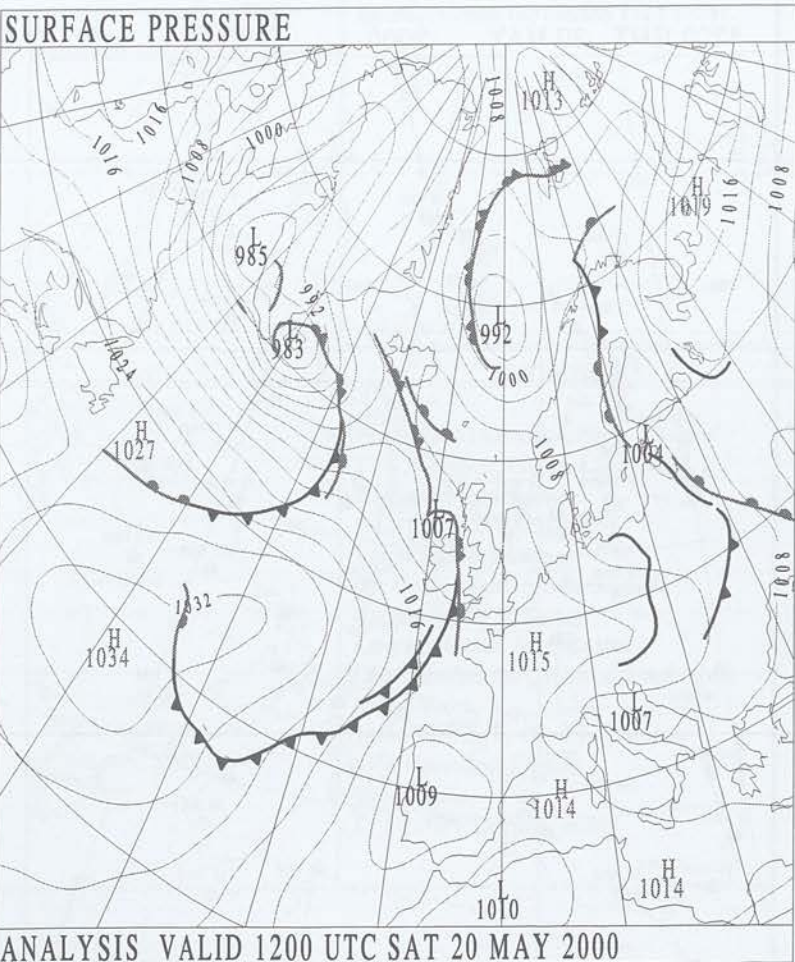 SURFACE PRESSURE
H
1013
1008
1016
1016
1000
1008
1016
1008
H
1019
L
985
992
L
983
L
992
1000
1024
H
1027
1008
L
1004
L
1007
1008
1032
1016
H
1034
H
1015
L
1007
L
1009
H
1014
H
1014
L
1010
ANALYSIS VALID 1200 UTC SAT 20 MAY 2000